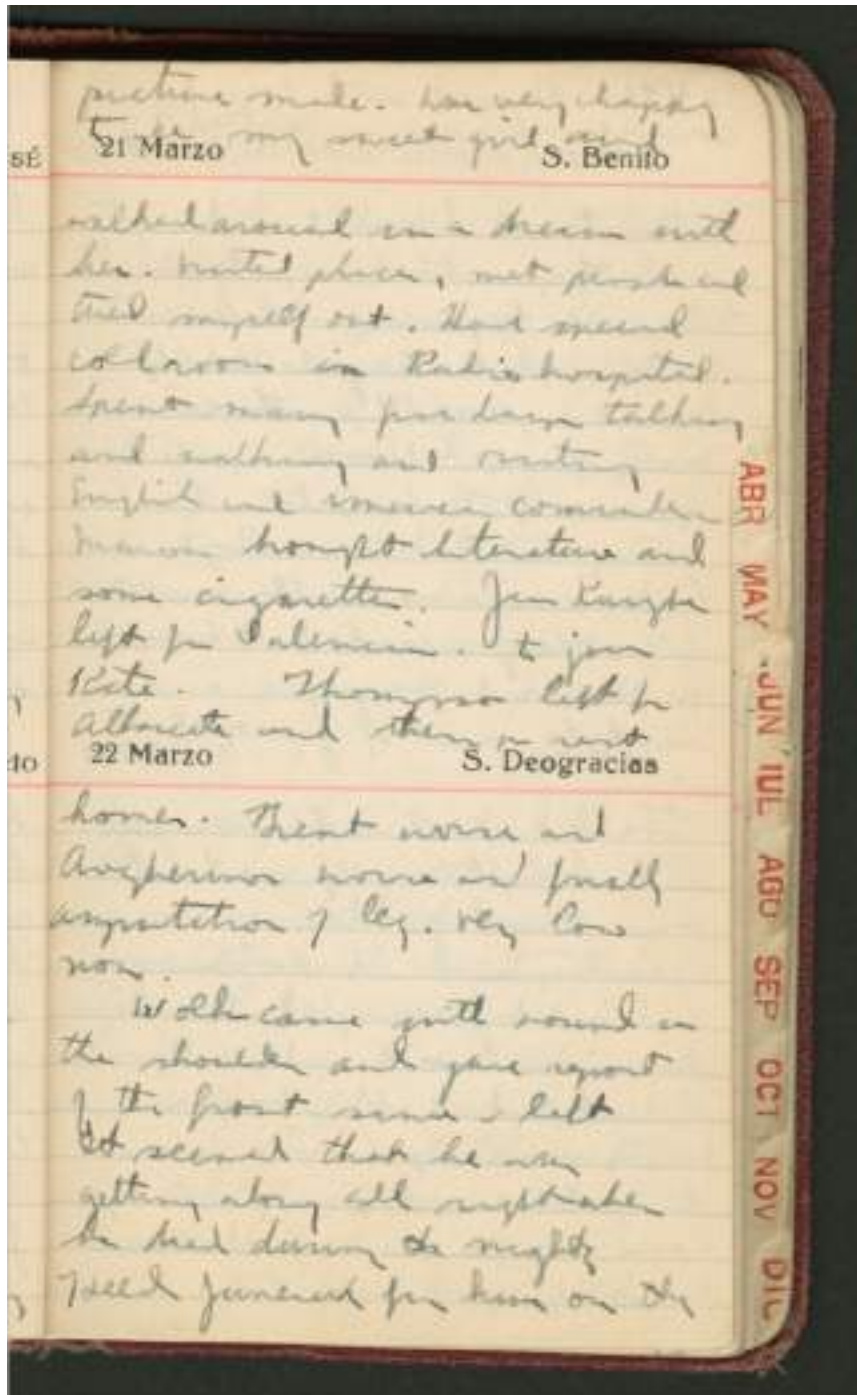 picture made. Was very happy
to see my sweet girl and
SÉ 21 Marzo S. Benito
walked around in a dream with
her. Visited places, met people and
tired myself out. Had special
in hospital.
Spent many days talking
and walking and visiting
English and American comrades
brought literature and
some cigarettes. Jim
left for Valencia. to join
Kate. Thompson left for
Albacete and then went
22 Marzo S. Deogracias
home. worse and
worse and finally
amputation of leg. Very low
now.
came with wound in
the shoulder and gave report
of the front since I left
It seemed that he was
getting along all right when
he died during the night
funeral for him on the
ABR
MAY
JUN
JUL
AGO
SEP
OCT
NOV
DIC